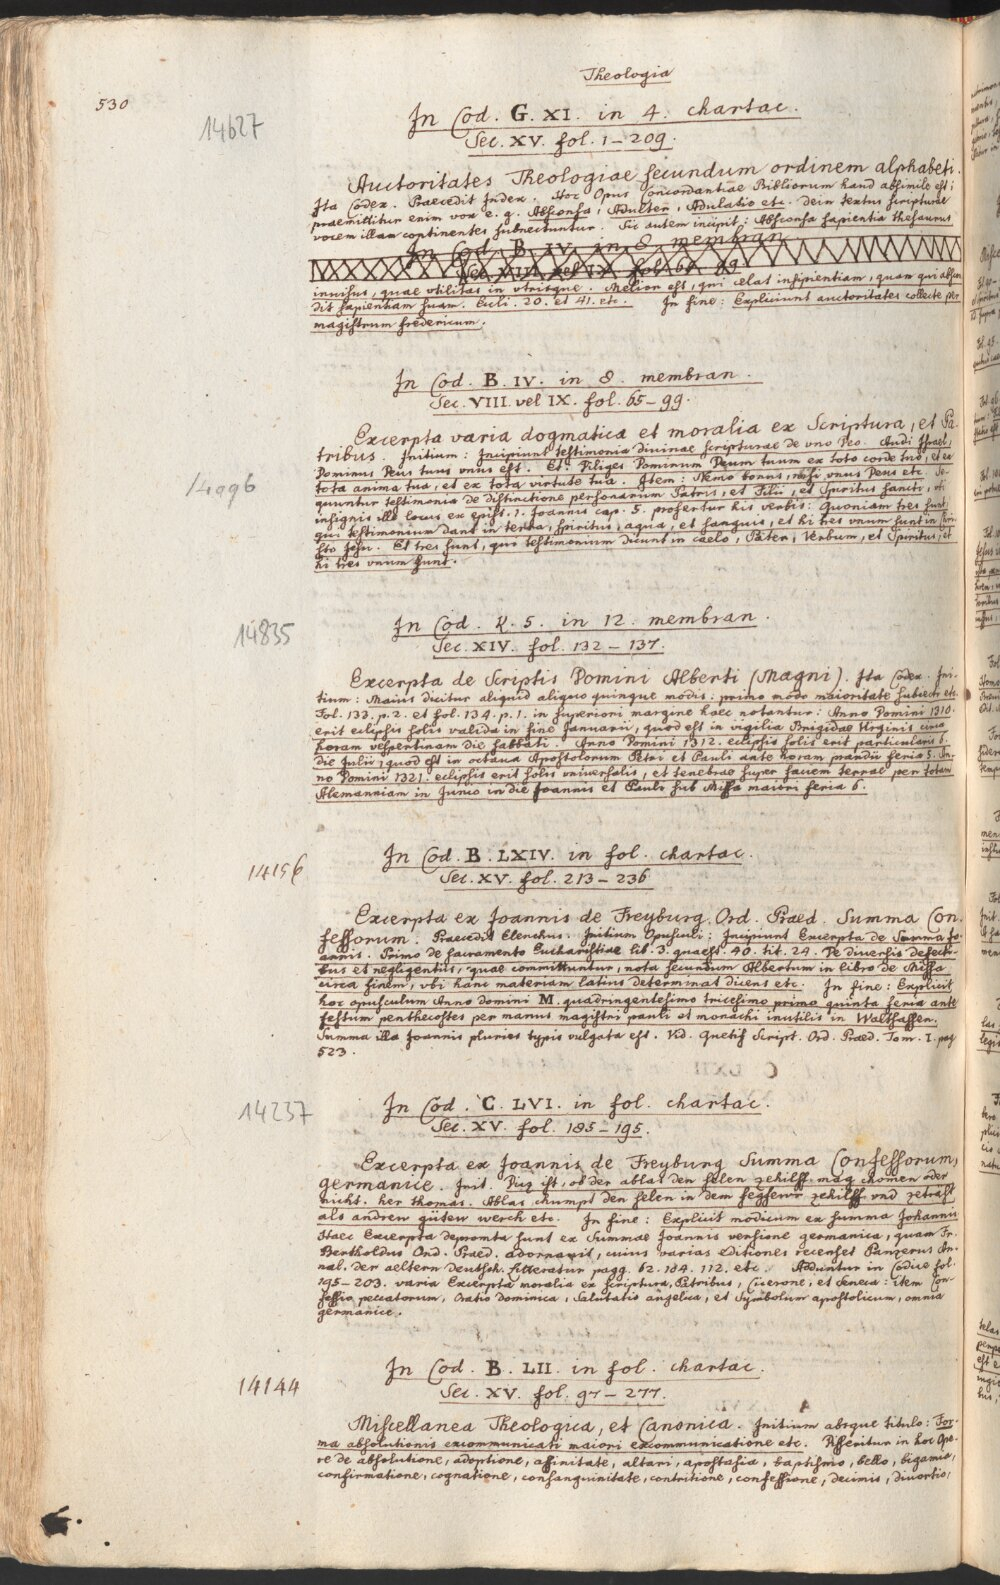 Theologia
530
14627
In Cod. G. XI. in 4. chartac.
Sec. XV. fol. 1–209.
Auctoritates Theologiae secundum ordinem alphabeti.
Ita Codex. Praecedit Index. Hoc Opus Concordantiae Bibliorum haud absimile est;
praemittitur enim vox e. g. Absconsa, Adulter, Adulatio etc. Dein textus scripturae
vocem illam continentes subnectuntur. Sic autem incipit: Absconsa sapientia thesaurus
In Cod. B. IV. in 8. membran
Sec. VIII. vel IX. fol. 65–99
invisus, quae utilitas in utrisque. Melior est, qui celat insipientiam, quam qui abscon
dit sapientiam suam. Eccli. 20. et 41. etc. In fine: Expliciunt auctoritates collecte per
magistrum fredericum.
In Cod. B. IV. in 8. membran.
Sec. VIII. vel IX. fol. 65–99.
14096
Excerpta varia dogmatica et moralia ex Scriptura, et Pa-
tribus. Initium: Incipiunt testimonia divinae scripturae de uno Deo. Audi Israel,
Dominus Deus tuus unus est. Et: Diliges Dominum Deum tuum ex toto corde tuo, et ex
tota anima tua, et ex tota virtute tua. Item: Nemo bonus, nisi unus Deus etc. Se-
quuntur testimonia de distinctione personarum Patris, et Filii, et Spiritus sancti, ubi
insignis ille locus ex epist. 1. Joannis cap. 5. profertur his verbis: Quoniam tres sunt,
qui testimonium dant in terra, spiritus, aqua, et sanguis, et hi tres unum sunt in Chri-
sto Jesu. Et tres sunt, qui testimonium dicunt in caelo, Pater, Verbum, et Spiritus, et
hi tres unum sunt.
14835
In Cod. K. 5. in 12. membran.
Sec. XIV. fol. 132–137.
Excerpta de Scriptis Domini Alberti (Magni). Ita Codex. Ini-
tium: Maius dicitur aliquid aliquo quinque modis: primo modo maioritate subiecti etc.
Fol. 133. p. 2. et fol. 134. p. 1. in superiori margine haec notantur: Anno Domini 1310.
erit eclipsis solis valida in fine Januarii, quod est in vigilia Brigidae Virginis circa
horam vespertinam die sabbati. Anno Domini 1312. eclipsis solis erit particularis 6.
die Julii, quod est in octava Apostolorum Petri et Pauli ante horam prandii feria 5. An-
no Domini 1321. eclipsis erit solis universalis, et tenebrae super faciem terrae per totam
Alemanniam in Junio in die Joannis et Pauli sub Missa maiori feria 6.
14196
In Cod. B. LXIV. in fol. chartac.
Sec. XV. fol. 213–236
Excerpta ex Joannis de Freyburg Ord. Praed. Summa Con-
fessorum. Praecedit Elenchus. Initium Opusculi: Incipiunt Excerpta de Summa Jo-
annis. Primo de sacramento Eucharistiae lib. 3. quaest. 40. tit. 24. De diversis defecti-
bus et negligentiis, quae committuntur, nota secundum Albertum in libro de Missa
circa finem, ubi hanc materiam latius determinat dicens etc. In fine: Explicit
hoc opusculum Anno domini M. quadringentesimo tricesimo primo quinta feria ante
festum penthecostes per manus magistri pauli et monachi inutilis in Walthassen.
Summa illa Joannis pluries typis vulgata est. Vid. Quetif Script. Ord. Praed. Tom. I. pag
523.
14237
In Cod. C. LVI. in fol. chartac.
Sec. XV. fol. 185–195.
Excerpta ex Joannis de Freyburg Summa Confessorum,
germanice. Init. Diz ist, ob der ablas den selen zehilff mag chomen oder
nicht. her thomas. Ablas chumpt den selen in dem fegfewr zehilff und zetrast
als andrew güten werch etc. In fine: Explicit modicum ex summa Johannis
Haec Excerpta depromta sunt ex Summae Joannis versione germanica, quam Fr.
Bertholdus Ord. Praed. adornavit, cuius varias editiones recenset Panzerus An-
nal. der aeltern deutsch. Litteratur pagg. 62. 184. 112. etc. Adduntur in Codice fol.
195–203. varia Excerpta moralia ex scriptura, Patribus, Cicerone, et Seneca: item Con-
fessio peccatorum, Oratio Dominica, Salutatio angelica, et Symbolum apostolicum, omnia
germanice.
14144
In Cod. B. LII. in fol. chartac.
Sec. XV. fol. 97–277.
Miscellanea Theologica, et Canonica. Initium absque titulo: For-
ma absolutionis excommunicati maiori excommunicatione etc. Disseritur in hoc Ope-
re de absolutione, adoptione, affinitate, altari, apostasia, baptismo, bello, bigamia,
confirmatione, cognatione, consanguinitate, contritione, confessione, decimis, divortio,